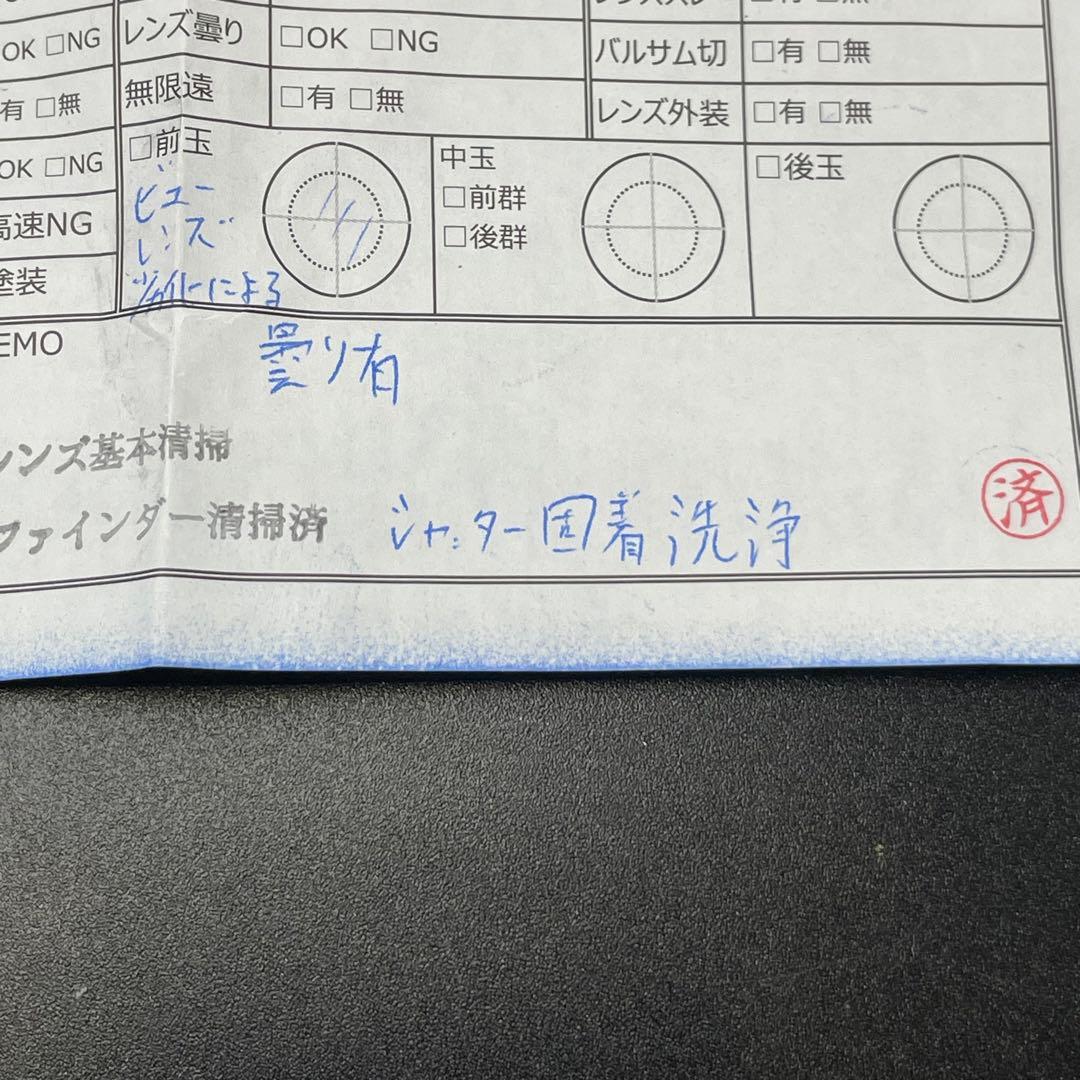 OK □NG レンズ曇り □OK □NG バルサム切 □有 □無
有 □無 無限遠 □有 □無 レンズ外装 □有 □無
OK □NG □前玉 中玉 □後玉
ビュー □前群
高速NG レンズ □後群
塗装 による
EMO 曇り有
レンズ基本清掃
ファインダー清掃済 シャッター固着洗浄 済